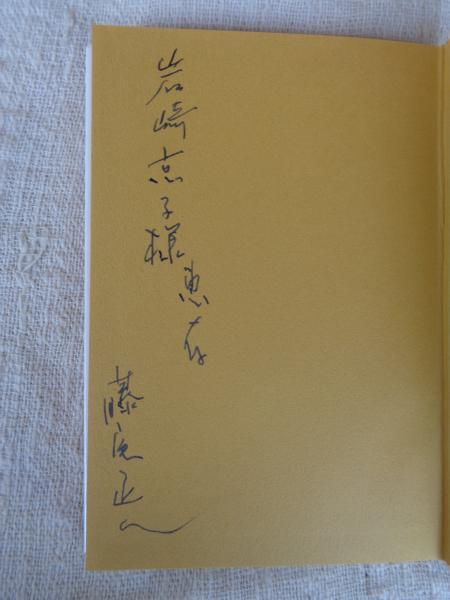 岩崎京子様
恵存
藤原正